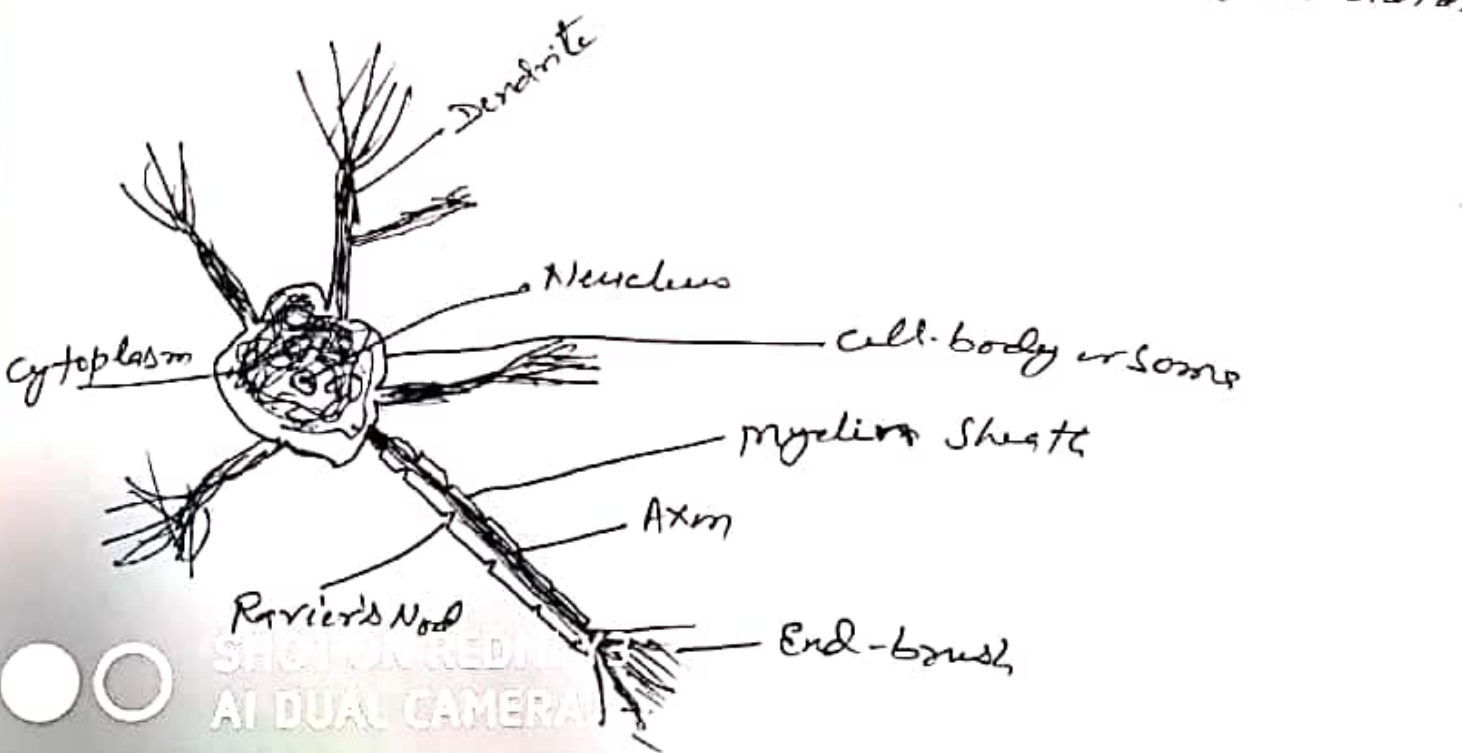 Dendrite
Neucleus
Cytoplasm
Cell-body or Soma
Myelin Sheath
Axon
Ravier's Nod
End-brush
SHOT ON REDMI
AI DUAL CAMERA